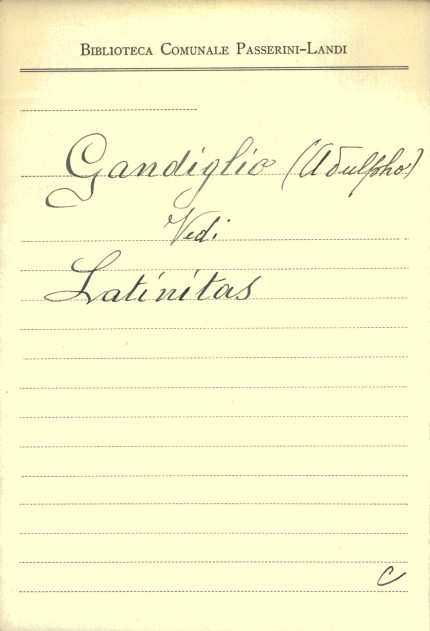 Biblioteca Comunale Passerini-Landi
Gandiglio (Adulpho)
Vedi
Latinitas
C